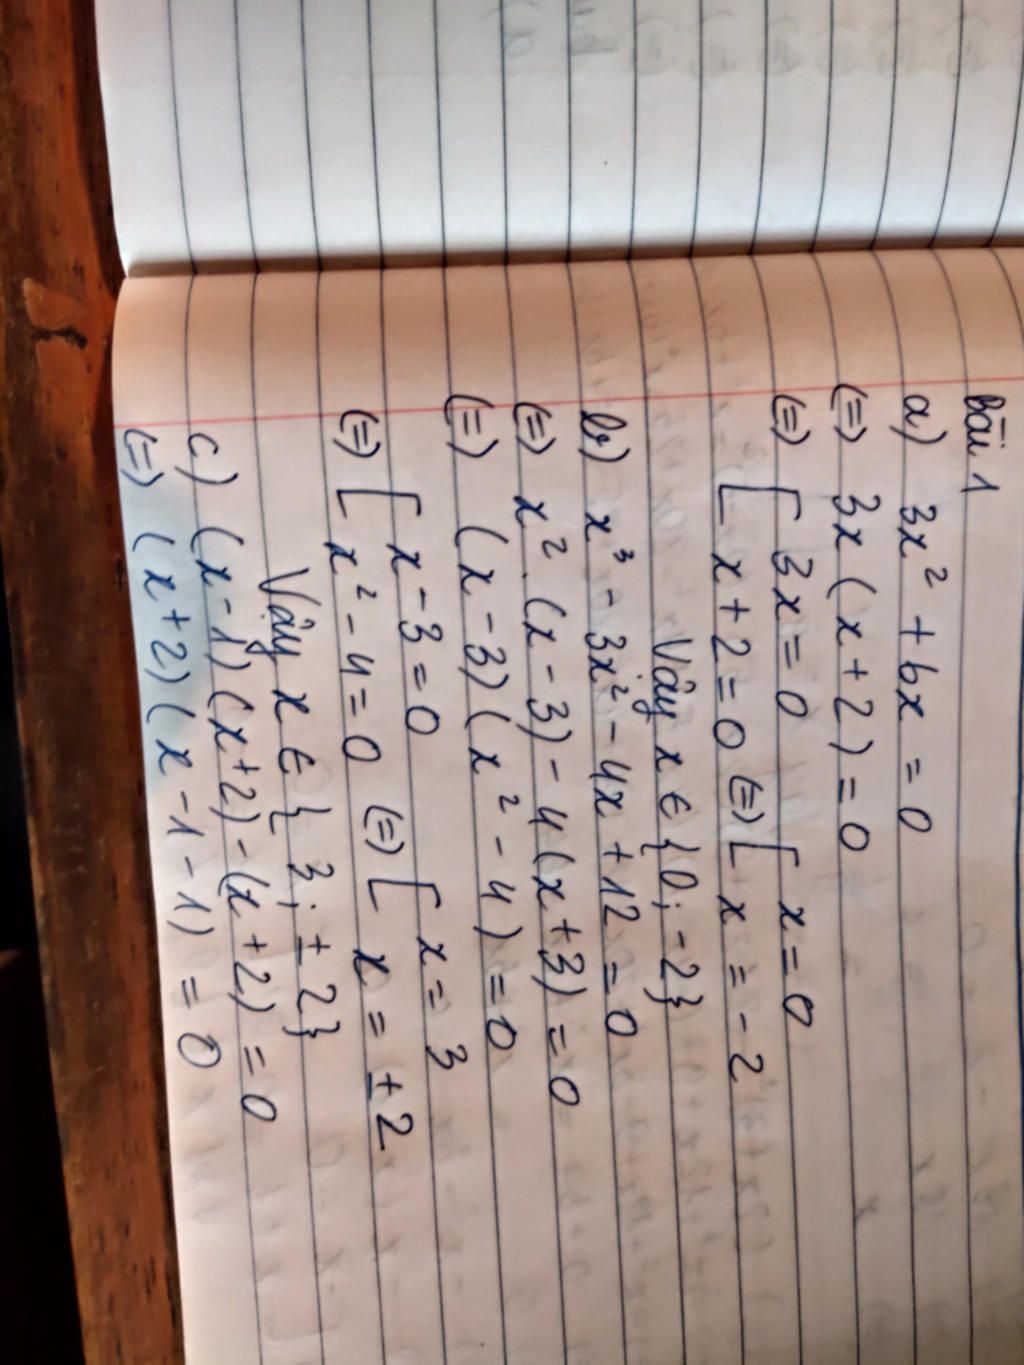 Bài 1
a) 3x² + 6x = 0
(=) 3x (x + 2) = 0
(=) [ 3x = 0 (=) [ x = 0
x + 2 = 0 x = - 2
Vậy x ∈ {0; -2}
b) x³ - 3x² - 4x + 12 = 0
(=) x² . (x - 3) - 4 (x + 3) = 0
(=) (x - 3) (x² - 4) = 0
(=) [ x - 3 = 0 (=) [ x = 3
x² - 4 = 0 x = ± 2
Vậy x ∈ { 3; ± 2}
c) (x - 1) (x + 2) - (x + 2) = 0
(=) (x + 2) (x - 1 - 1) = 0